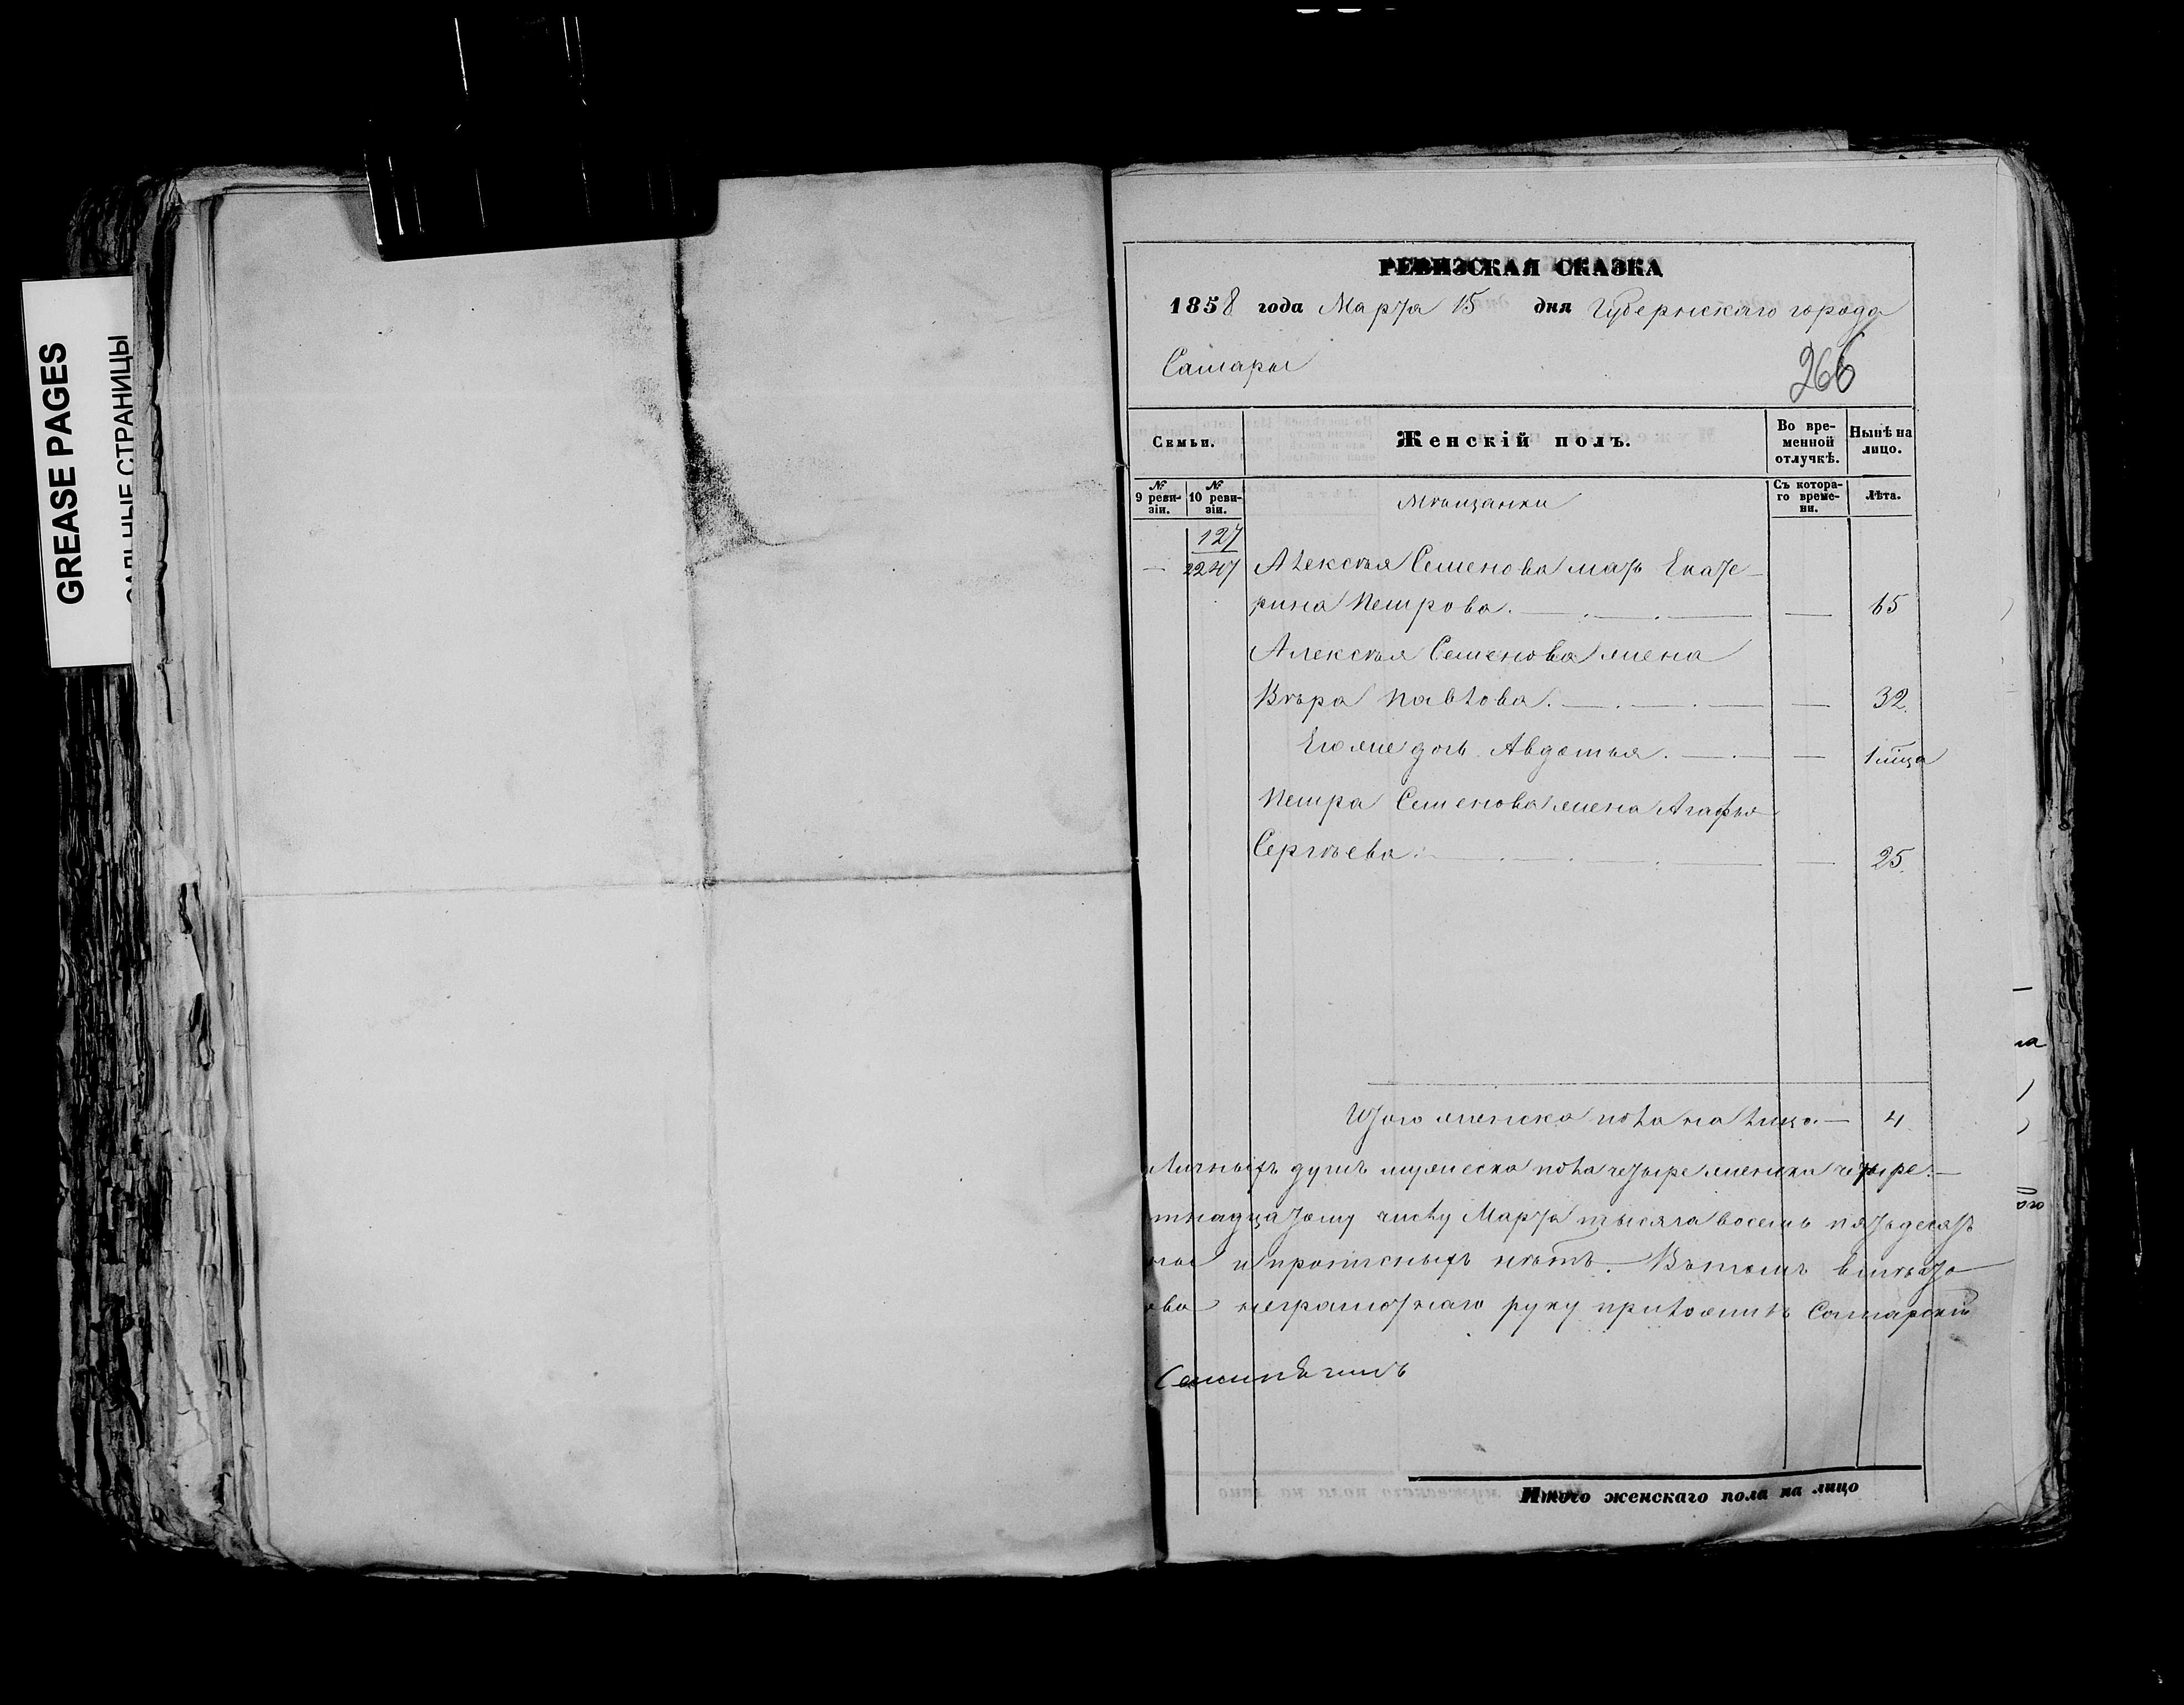 GREASE PAGES
САЛЬНЫЕ СТРАНИЦЫ
РЕВИЗСКАЯ СКАЗКА
1858 года Марта 15 дня Губернскаго города
Самары
266
Семьи.
Женскій полъ.
Во временной отлучкѣ.
Нынѣ на лицо.
№ 9 ревизіи.
№ 10 ревизіи.
Мѣщанки
Съ котораго времени.
Лѣта.
127
— 2247 Алексѣя Семенова мать Екате-
рина Петрова. — — 65
Алексѣя Семенова жена
Вѣра Павлова. — — 32.
Его же дочь Авдотья. — — 1 мца
Петра Семенова жена Агафья
Сергѣева. — — 25.
Итого женска пола на лицо. — 4
личныхъ душъ мужеска пола четыре женска четыре. —
тнадцатому числу Марта тысяча восемь пятьдесятъ
и прописныхъ нѣтъ. Въ томъ вмѣсто
ова неграмотнаго руку приложилъ Самарскій
Итого женскаго пола на лицо